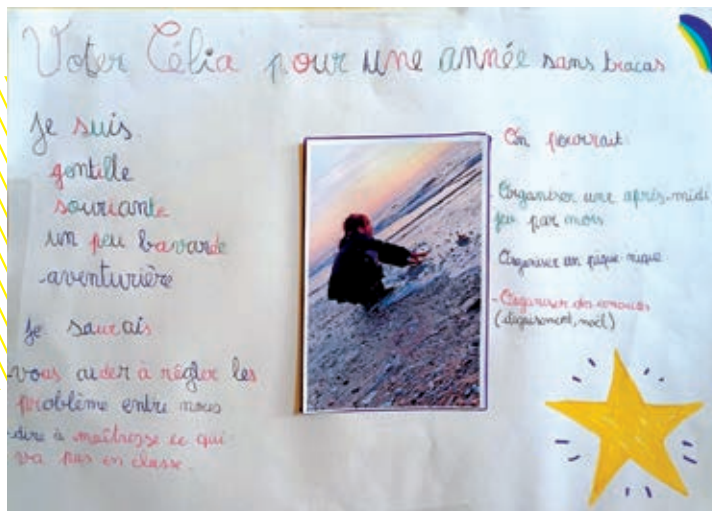 Voter Célia pour une année sans tracas
Je suis
gentille
souriante
un peu bavarde
-aventurière
Je saurais
-vous aider à régler les
problème entre nous
-dire à maîtresse ce qui
va pas en classe.
On pourrait
-Organiser une après-midi
jeu par mois
Organiser un pique-nique
-Organiser des concours
(déguisement, noël)